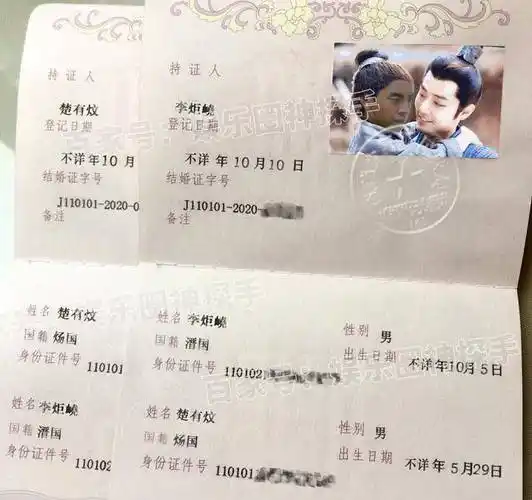 持证人
楚有炆
登记日期
不洋年10月
结婚证字号
J110101-2020-0
备注
姓名 楚有炆
国籍 炀国
身份证件号 110101
姓名 李炬嶢
国籍 溍国
身份证件号 110102
持证人
李炬嶢
登记日期
不洋年10月10日
结婚证字号
J110101-2020-
备注
姓名 李炬嶢 性别 男
国籍 溍国 出生日期 不洋年10月5日
身份证件号 110102
姓名 楚有炆 性别 男
国籍 炀国 出生日期 不洋年5月29日
身份证件号 110101
百家号：娱乐圈神探手
乐圈神探手
百家号：娱乐圈神探手